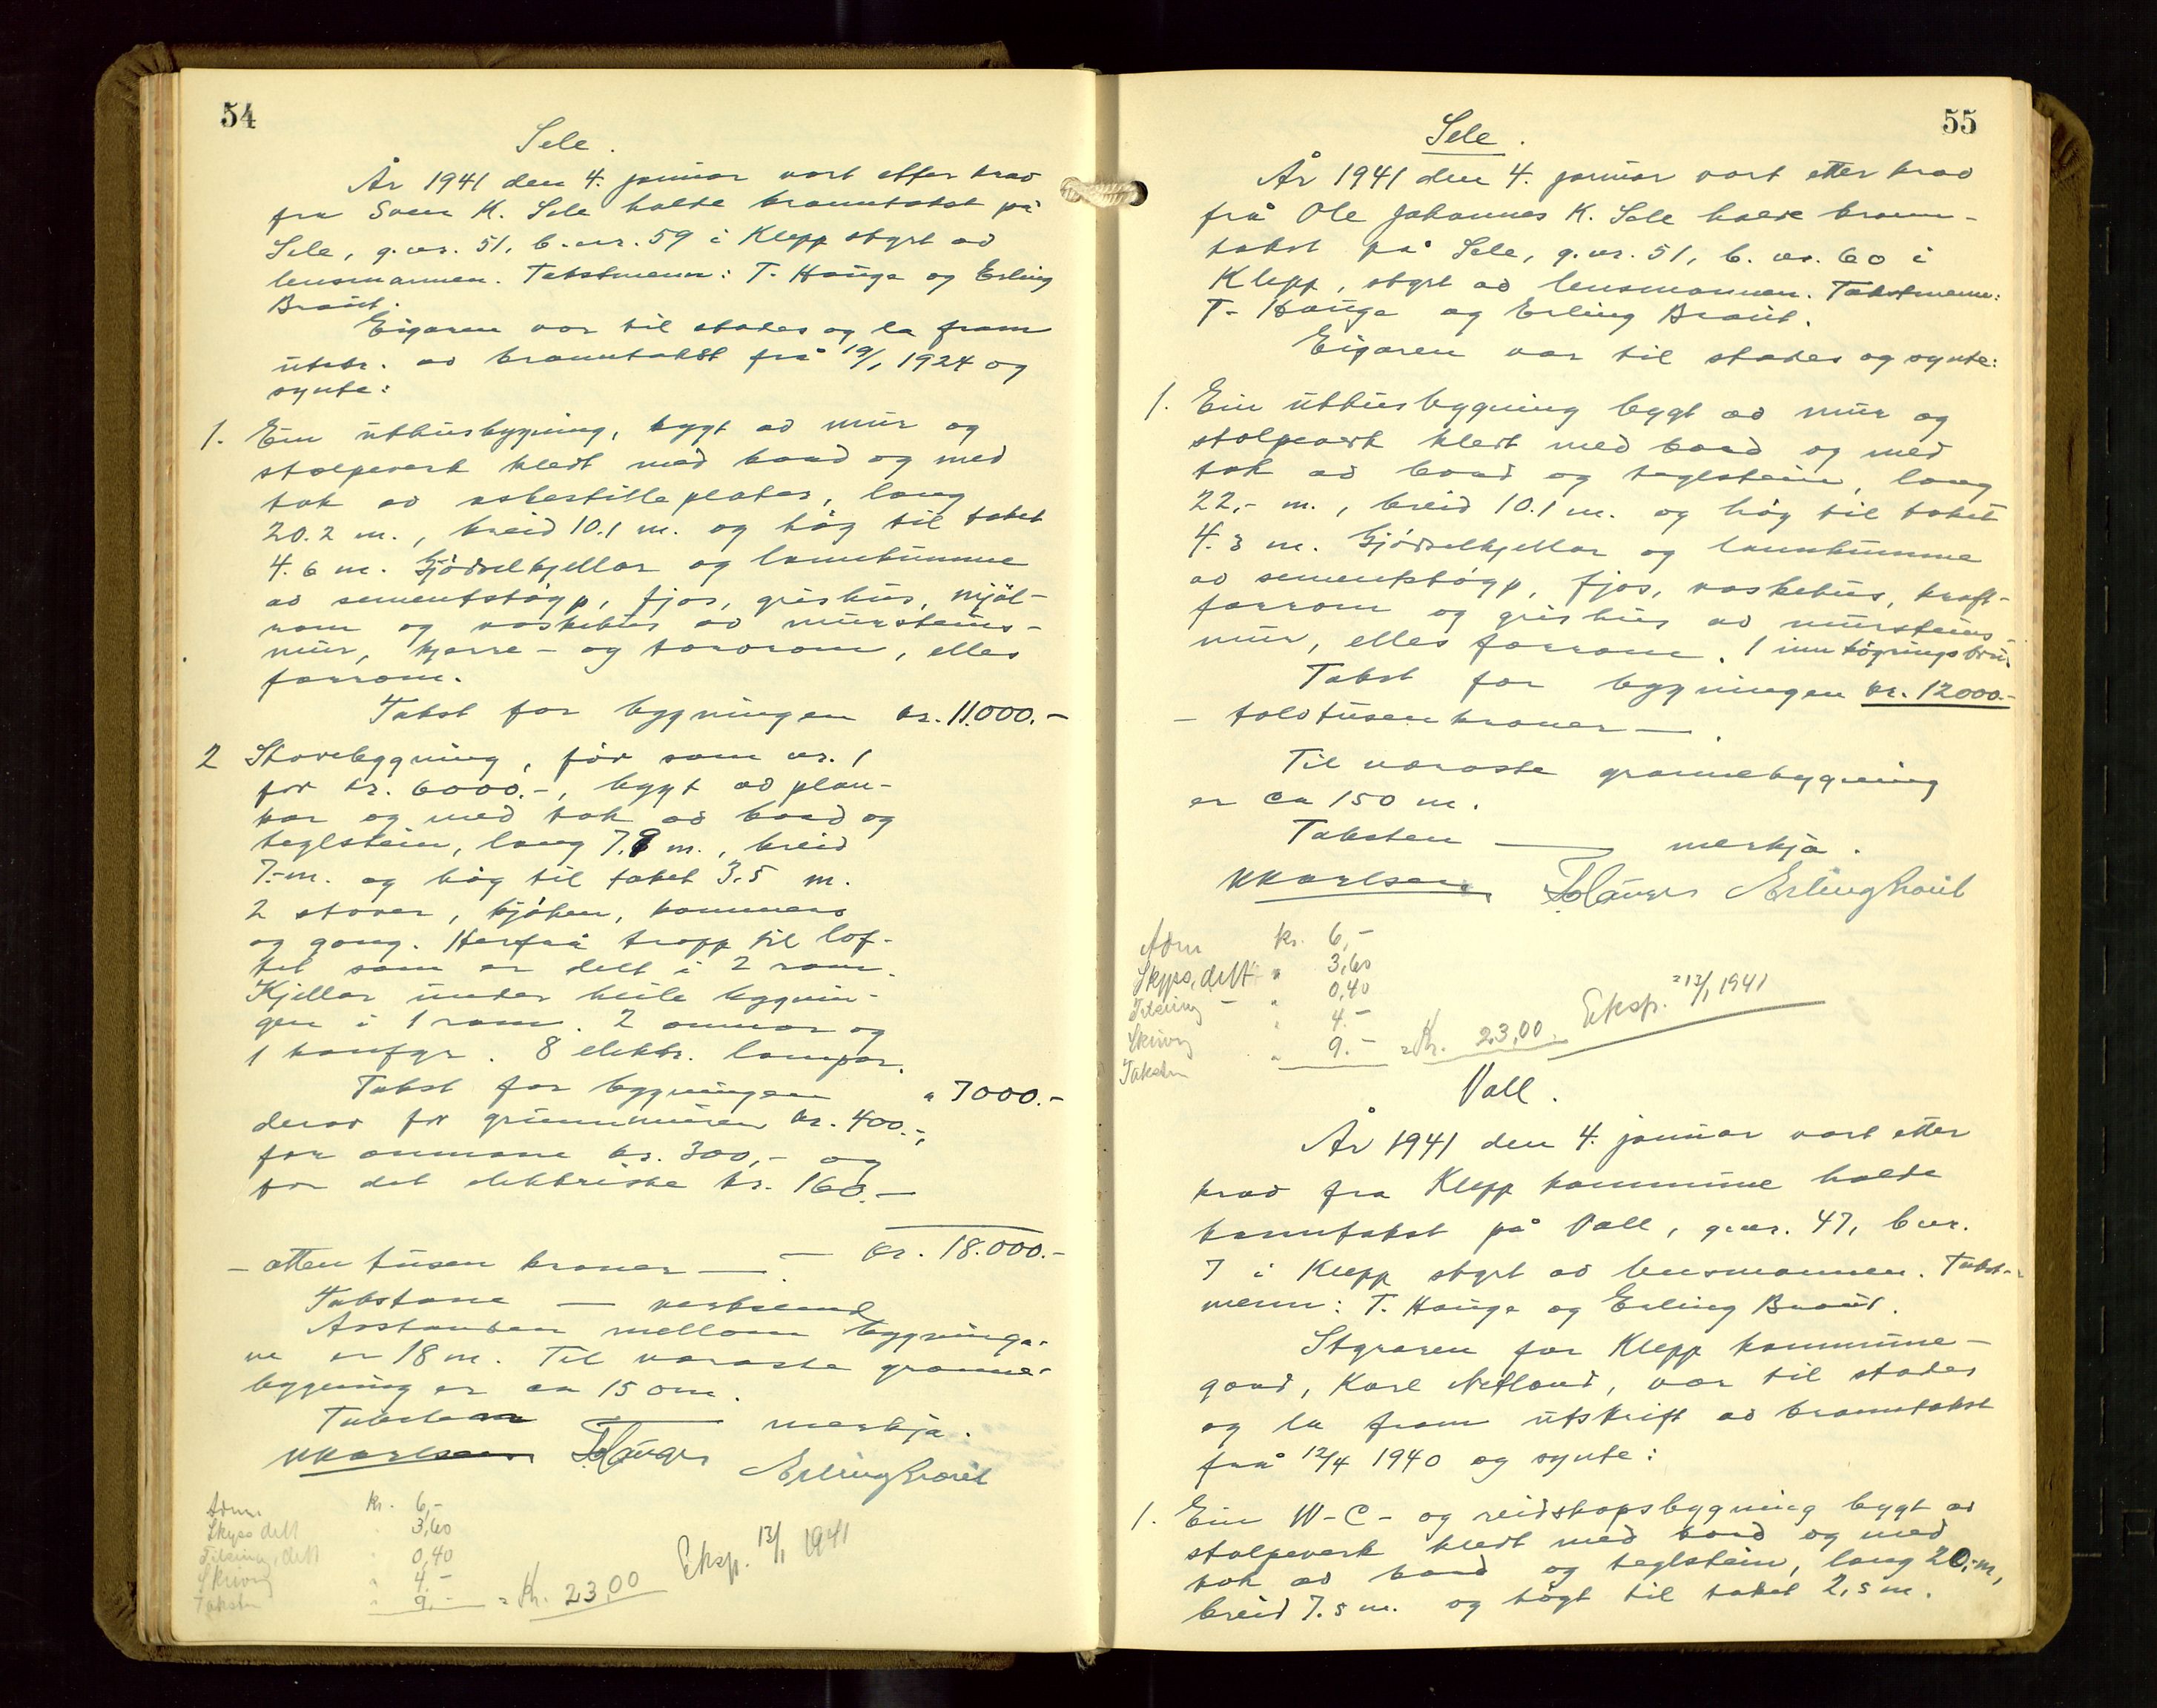 54
Sele.
År 1941 den 4. januar vart etter krav
fra Sven K. Sele halde branntakst på
Sele, g.nr. 51, b.nr. 59 i Klepp styrt av
lensmannen. Takstmenn: T. Hauge og Erling
Braut.
Eigaren var til stades og la fram
utskr. av branntakst frå 19/1 1924 og
synte:
1. Ein uthusbygning, bygt av mur og
stolpeverk kledt med bord og med
tak av asbestitteplater, lang
20.2 m., breid 10.1 m. og høg til taket
4.6 m. Gjødselkjellar og lannkumme
av sementstøyp, fjos, grishus, mjøl-
rom og vaskehus av mursteins-
mur, kjerre- og torvrom, elles
forrom.
Takst for bygningen kr. 11.000.-
2 Stovebygning, før som nr. 1
for kr. 6000.-, bygt av plan-
kar og med tak av bord og
teglstein, lang 7.9 m., breid
7.-m. og høg til taket 3.5 m.
2 stover, kjøken, kammers
og gang. Herfrå tropp til lof-
tet som er delt i 2 rom.
Kjellar under heile bygnin-
gen i 1 rom. 2 omnar og
1 komfyr. 8 elektr. lampor.
Takst for bygningen " 7000.-
derav for grunnmuren kr. 400.-,
for omnane kr. 300,- og
for det elektriske kr. 160.-
- atten tusen kroner - kr. 18.000.-
Takstane — verksend
Avstanden mellom bygninga-
ne er 18 m. Til næraste granne-
bygning er ca 150 m.
Taksten — merkja.
KKarlsen THauge Erling Braut
Adm. kr. 6,-
Skyss delt " 3,60
Tilseiing, delt " 0,40
Skriving " 4.-
Taksten " 9.- = Kr. 23,00 Eksp. 13/1 1941
55
Sele.
År 1941 den 4. januar vart etter krav
frå Ole Johannes K. Sele halde brann-
takst på Sele, g.nr. 51, b.nr. 60 i
Klepp, styrt av lensmannen. Takstmenn:
T. Hauge og Erling Braut.
Eigaren var til stades og synte:
1. Ein uthusbygning bygt av mur og
stolpeverk kledt med bord og med
tak av bord og teglstein, lang
22,- m., breid 10.1 m. og høg til taket
4.3 m. Gjødselkjellar og lannkumme
av sementstøyp, fjos, vaskehus, kraft-
forrom og grishus av mursteins-
mur, elles forrom. 1 innkøyringsbru.
Takst for bygningen kr. 12000.-
- tolvtusen kroner -.
Til næraste grannebygning
er ca 150 m.
Taksten — merkja.
KKarlsen THauge Erling Braut
Adm kr. 6,-
Skyss, delt " 3,60
Tilseiing - " 0,40
Skriving " 4.-
Taksten " 9.- = Kr. 23,00. Eksp. 13/1 1941
Vall.
År 1941 den 4. januar vart etter
krav fra Klepp kommune halde
branntakst på Vall, g.nr. 47, b.nr.
7 i Klepp styrt av lensmannen. Takst-
menn: T. Hauge og Erling Braut.
Styraren for Klepp kommune-
gard, Karl Nefland, var til stades
og la fram utskrift av branntakst
frå 12/4 1940 og synte:
1. Ein W-C- og reidskapsbygning bygt av
stolpeverk kledt med bord og med
tak av bord og teglstein, lang 20,-m,
breid 7.5 m. og høgt til taket 2,5 m.